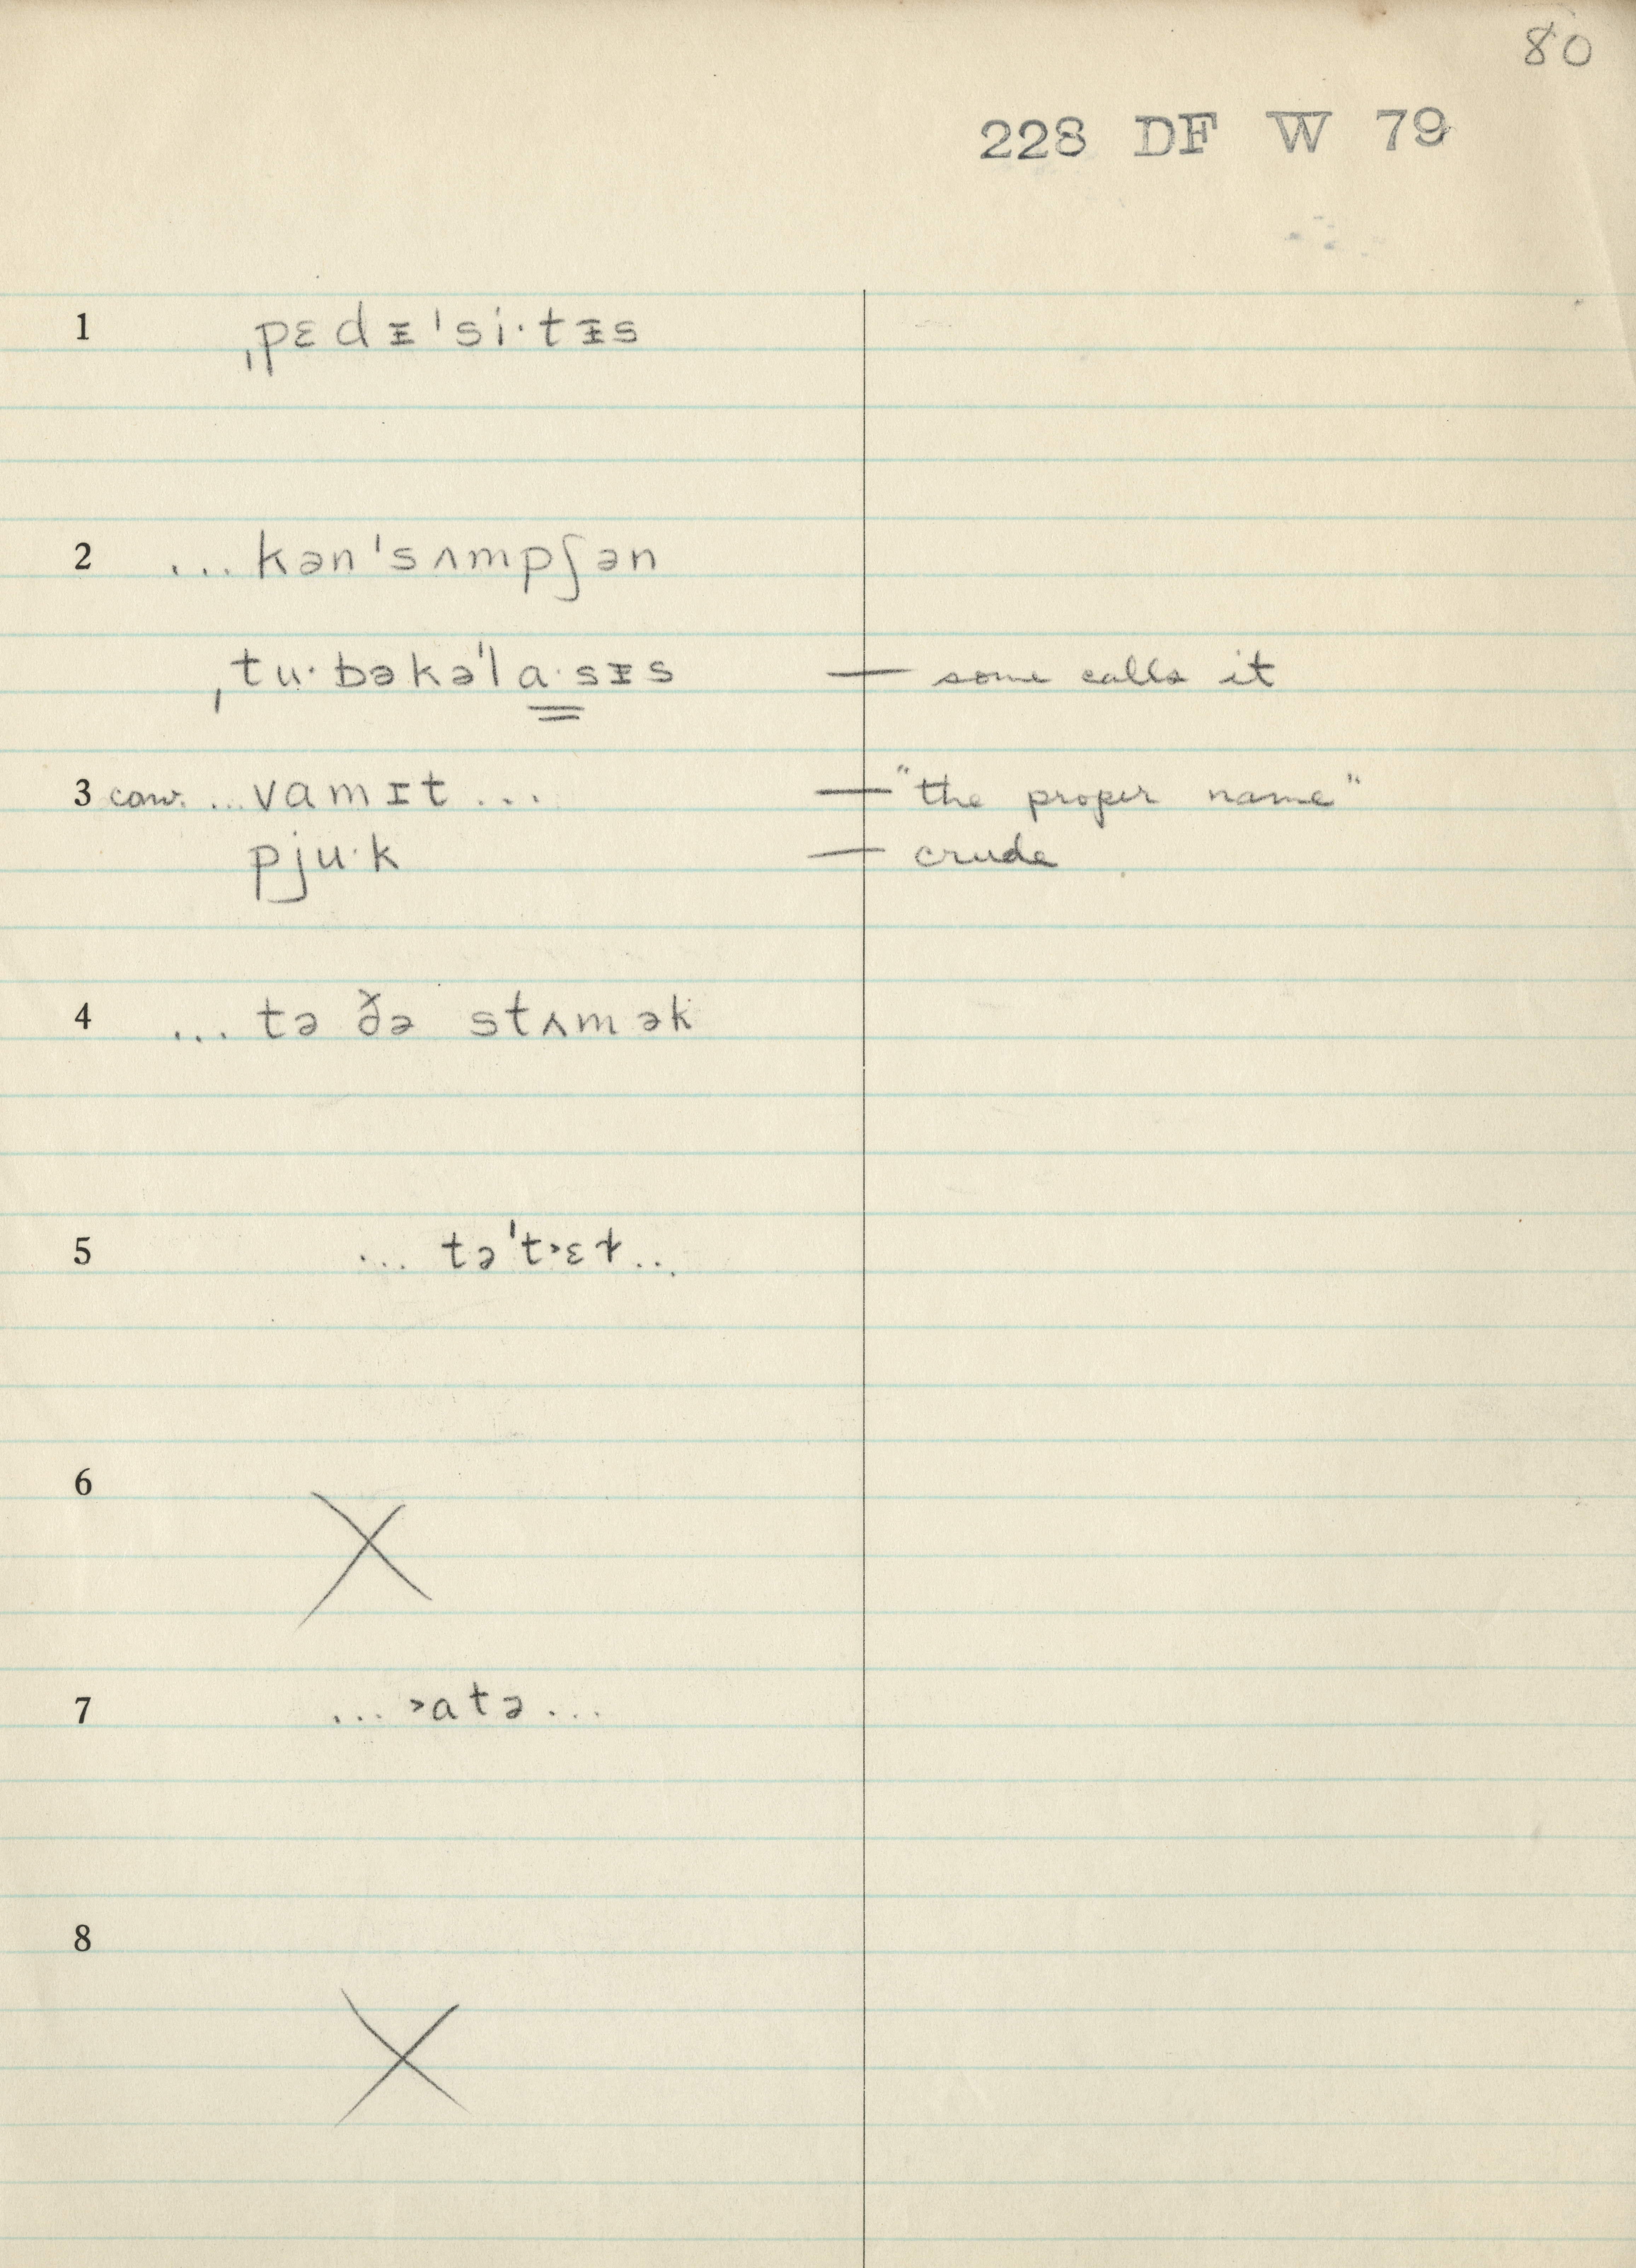 80
228 DF W 79
1 ˌpɛdᵻˈsi·tᵻs
2 ... kənˈsʌmpʃən
ˌtu·bəkəˈla·sᵻs — some calls it
3 conv. ... vamɪt ... — "the proper name"
pju·k — crude
4 ... tə ðə stʌmək
5 ... təˈt˃ɛɫ ...
6 X
7 ... ˃atə ...
8 X